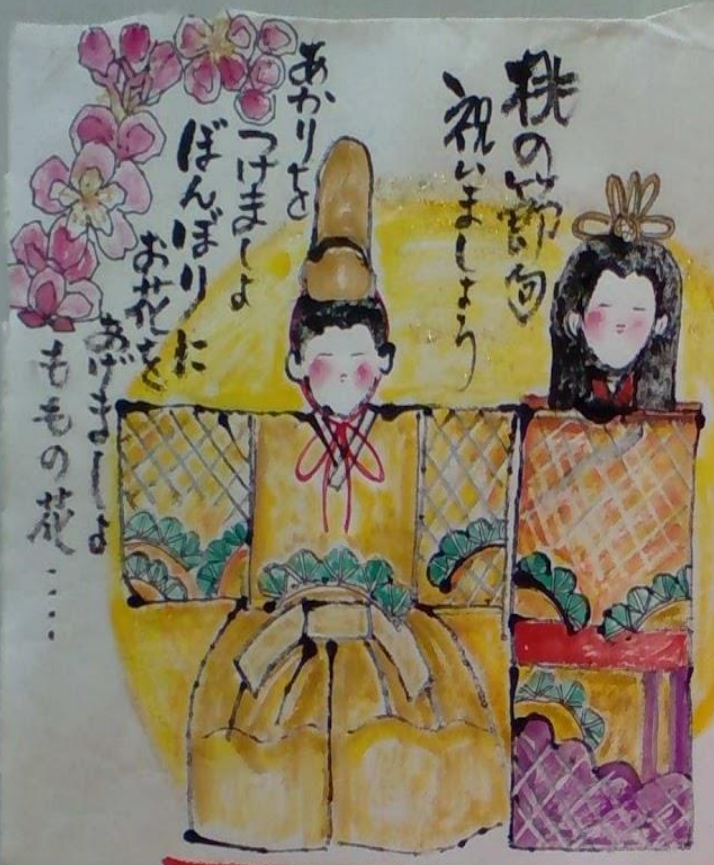 桃の節句
祝いましょう
あかりを
つけましょ
ぼんぼりに
お花を
あげましょ
ももの花....